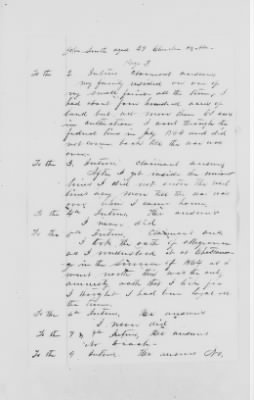 John Smith aged 29 Cherokee
Page 3
To the 2 Interr Claimant answers
my family resided on one of
my small farms all the time, I
had about four hundred acres of
land but not more than 60 acres
in cultivation. I went through the
federal lines in July 1864 and did
not come back till the war was
over.
To the 3 Interr claimant answers
After I got inside the union
lines I did not cross the rebel
lines any more till the war was
over when I came home,
To the 4th Interr, He answers
I never did
To the 5th Interr, Claimant ans
I took the oath of allegiance
as I understood it at Chattanoo-
ga in the summer of 1864 as I
went north this was the only
amnesty oath that I
I thought I had been loyal all
the time.
To the 6th Interr, He answers
I never did
To the 7 & 8th Interr, He answers
No
To the 9 Interr He answers No.